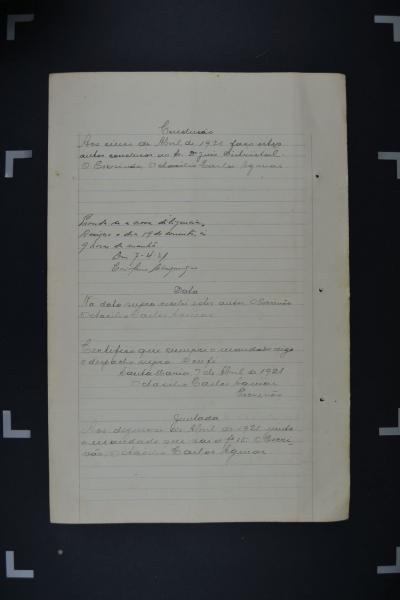 Conclusão
Aos cinco de Abril de 1921 faço estes
autos conclusos ao Sr. Dr. Juiz Districtal.
O Escrivão, Octacilio Carlos Aguiar
diligencia,
Designo o dia 19 do corrente, ás
9 horas da manhã
Em 7-4-21
Data
Na data supra recebi estes autos. O Escrivão
Octacilio Carlos Aguiar
Certifico que cumpri o mandado digo
o despacho supra. Dou fé
Santa Maria, 7 de Abril de 1921
Octacilio Carlos Aguiar
Escrivão
Juntada
Aos de Abril de 1921 junto
o mandado que O Escri-
vão, Octacilio Carlos Aguiar